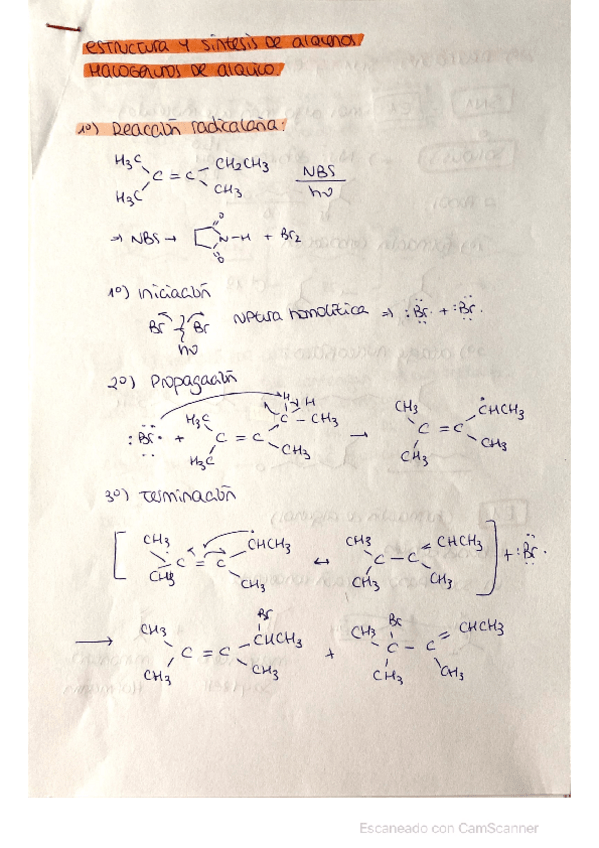 estructura y síntesis de alquenos
Halogenuros de alquilo.
1º) Reacción radicalaria:
H3C CH2CH3 NBS
C = C
H3C CH3 hν
⇒ NBS → O N-H O + Br2
1º) Iniciación
Br Br ruptura homolítica ⇒ :Br· + :Br·
hν
2º) Propagación
H H
H3C C - CH3 CH3 ĊHCH3
:Br· + C = C → C = C
H3C CH3 CH3 CH3
3º) Terminación
[ CH3 ĊHCH3 CH3 CHCH3 ] + :Br·
C = C ↔ C - C
CH3 CH3 CH3 CH3
Br
CH3 CHCH3 CH3 Br CHCH3
→ C = C + C - C
CH3 CH3 CH3 CH3
Escaneado con CamScanner